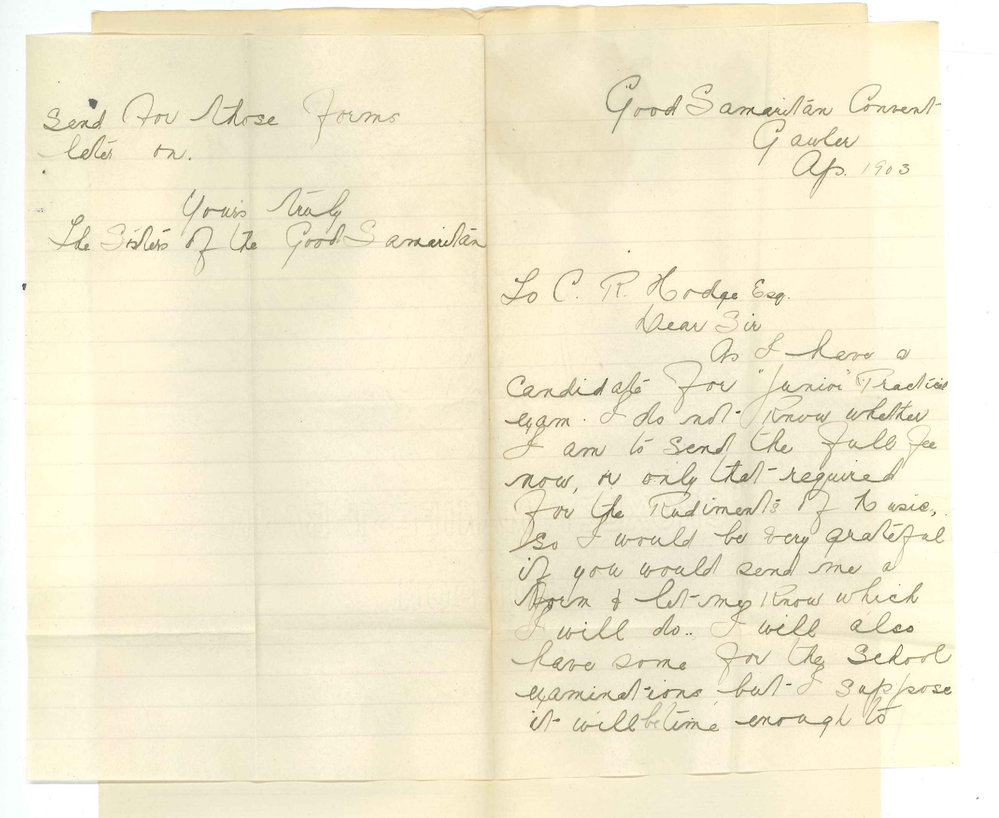 Good Samaritan Convent
Gawler
Ap. 1903
To C. R. Hodge Esq.
Dear Sir
As I have a
candidate for "Junior" Practical
exam. I do not know whether
I am to send the full fee
now, or only that required
for the Rudiments of Music,
so I would be very grateful
if you would send me a
form & let me know which
I will do.. I will also
have some for the School
examinations but I suppose
it will be time enough to
send for those forms
later on.
Yours truly
The Sisters of the Good Samaritan